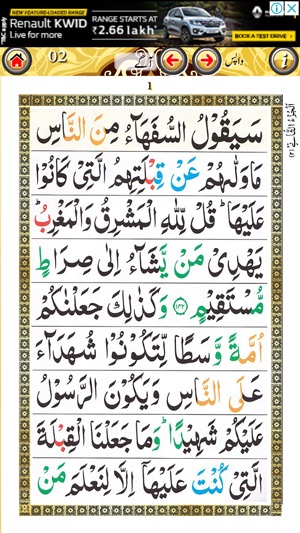 NEW FEATURE-LOADED RANGE
Renault KWID
Live for more
*T&C Apply
RANGE STARTS AT
₹2.66 lakh*
BOOK A TEST DRIVE
02
آگے
واپس
1
سَيَقُوْلُ السُّفَهَآءُ مِنَ النَّاسِ
مَا وَلّٰٮهُمْ عَنْ قِبْلَتِهِمُ الَّتِىْ كَانُوْا
عَلَيْهَا ؕ قُلْ لِّلّٰهِ الْمَشْرِقُ وَالْمَغْرِبُ ؕ
يَهْدِىْ مَنْ يَّشَآءُ اِلٰى صِرَاطٍ
مُّسْتَقِيْمٍ ﴿۱۴۲﴾ وَكَذٰلِكَ جَعَلْنٰكُمْ
اُمَّةً وَّسَطًا لِّتَكُوْنُوْا شُهَدَآءَ
عَلَى النَّاسِ وَيَكُوْنَ الرَّسُوْلُ
عَلَيْكُمْ شَهِيْدًا ؕ وَمَا جَعَلْنَا الْقِبْلَةَ
الَّتِىْ كُنْتَ عَلَيْهَآ اِلَّا لِنَعْلَمَ مَنْ